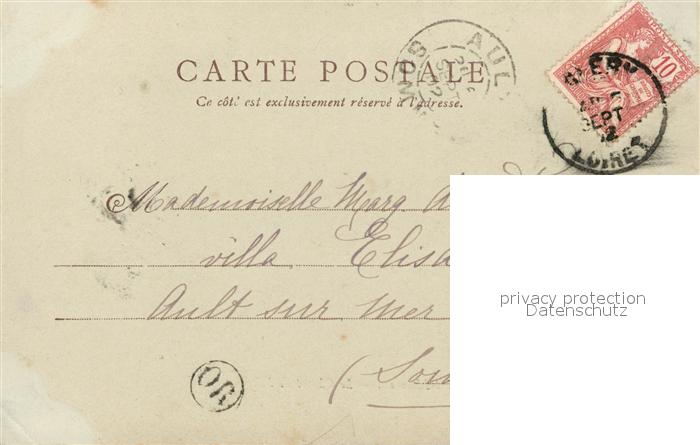 CARTE POSTALE
Ce côté est exclusivement réservé à l'adresse.
AUL
10
SEPT
LOIRET
Mademoiselle Marg
villa Elisa
Ault sur mer
(Som
privacy protection
Datenschutz